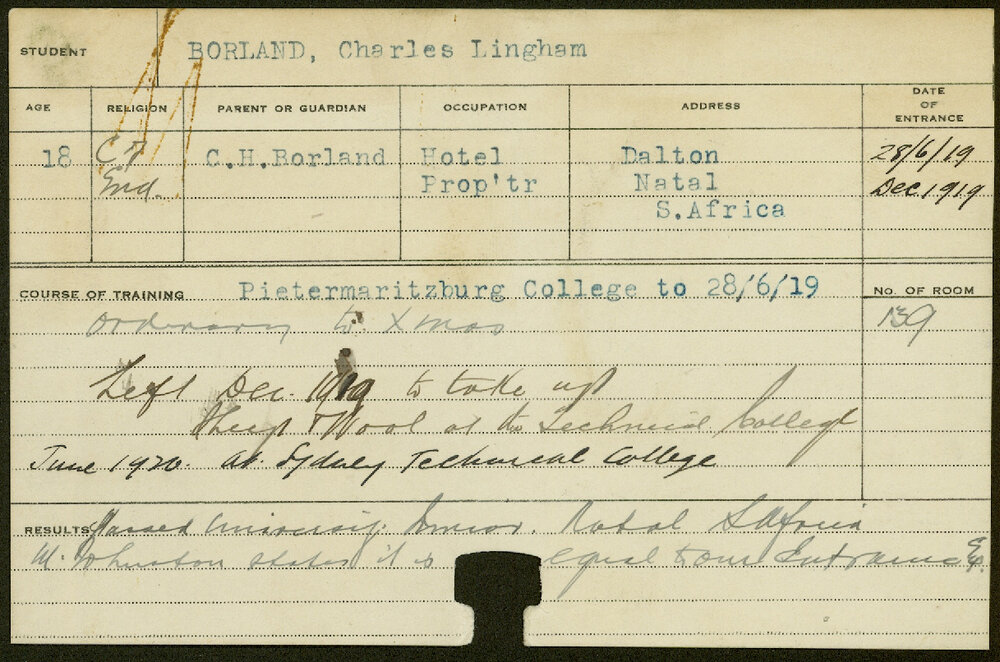 STUDENT BORLAND, Charles Lingham
AGE RELIGION PARENT OR GUARDIAN OCCUPATION ADDRESS DATE OF ENTRANCE
18 C of C.H.Borland Hotel Dalton 28/6/19
Eng. Prop'tr Natal Dec 1919
S.Africa
COURSE OF TRAINING Pietermaritzburg College to 28/6/19 No. OF ROOM
Ordinary to Xmas 139
Left Dec. 1919 to take up
Sheep & Wool at the Technical College
June 1920. At Sydney Technical College
RESULTS Passed University Junior. Natal S Africa
M. Johnston states it is equal to our Entrance Ex.